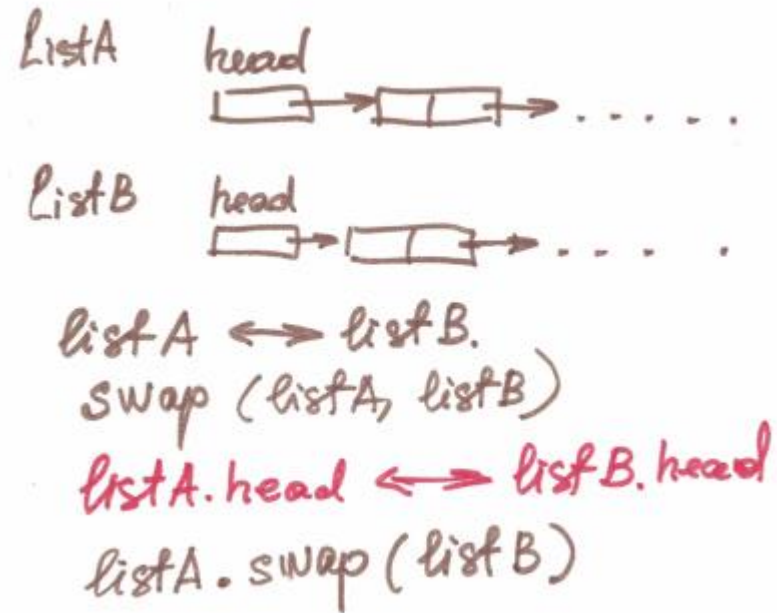 listA head
listB head
listA ↔ listB.
swap (listA, listB)
listA.head ↔ listB.head
listA.swap(listB)